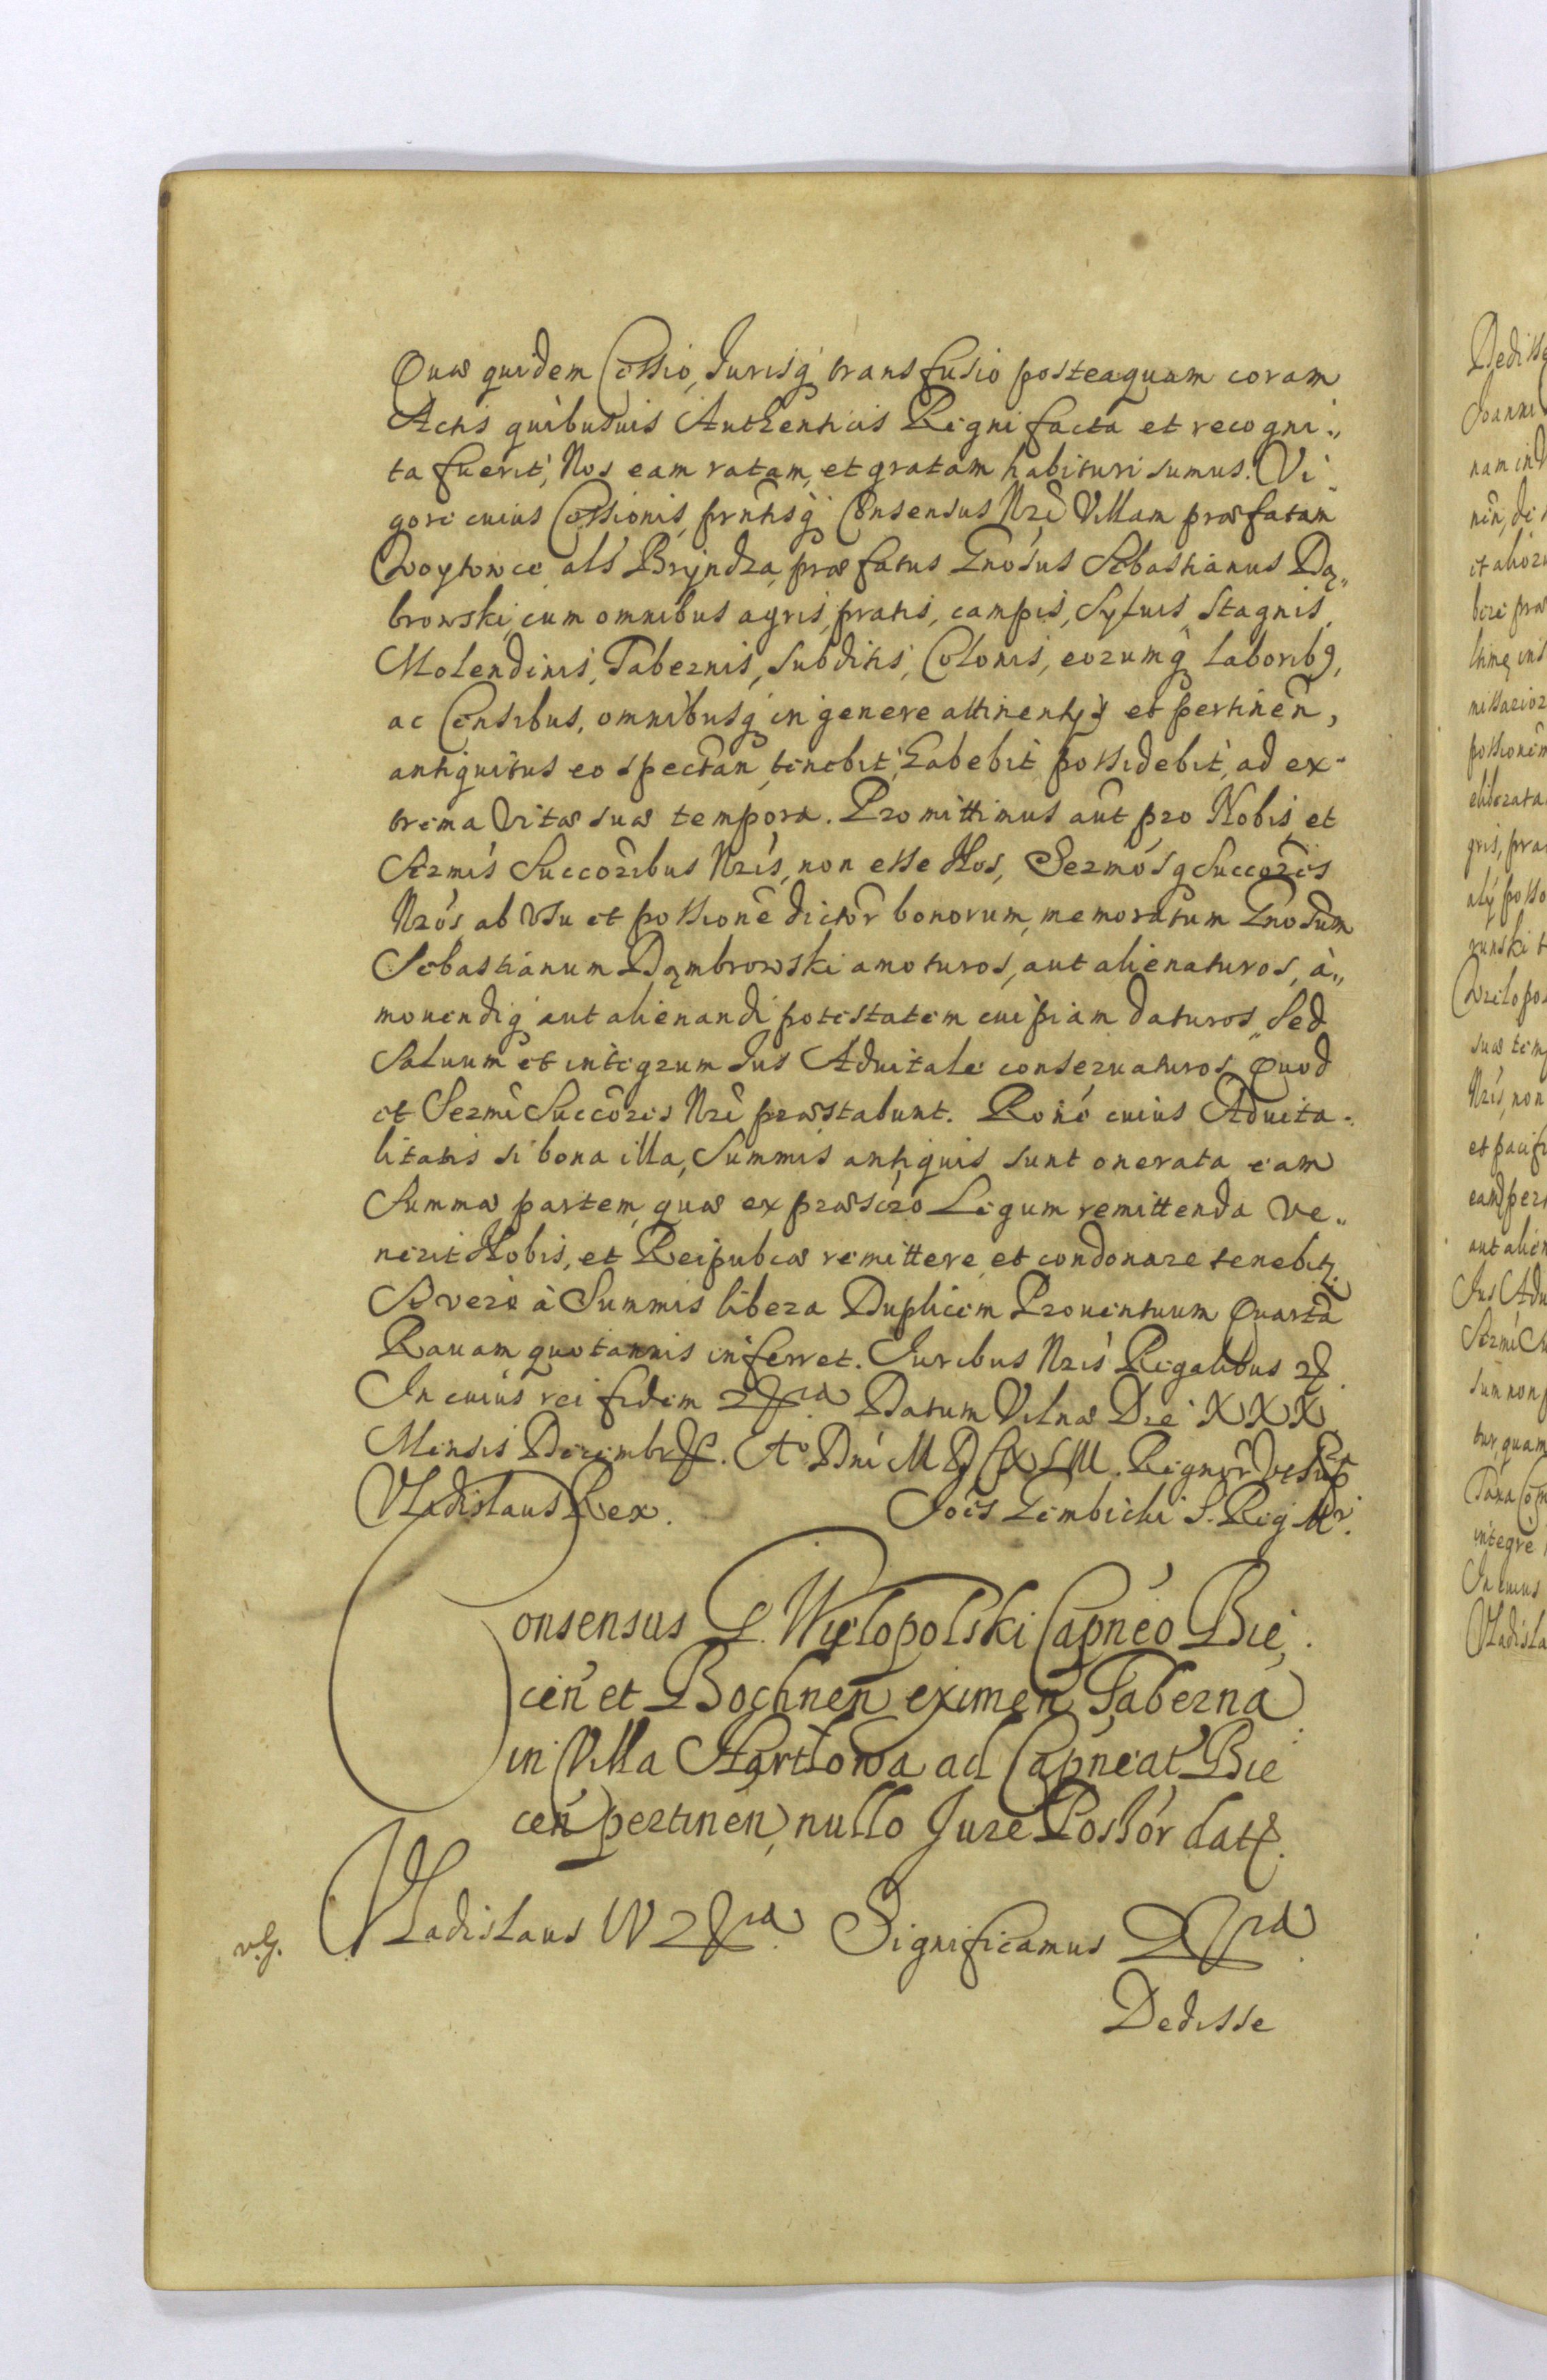 Quæ quidem Cessio, Jurisq́ transfusio posteaquam coram
Actis quibusuis Authenticis Regni facta et recogni„
ta fuerit, Nos eam ratam, et gratam habituri sumus. Vi„
gore cuius Cessionis, prñtisq́ Consensus Nri Villam præfatam
Woytowce als Bryndza, præfatus Gnosus Sebastianus Dą„
browski, cum omnibus agris, pratis, campis, Syluis, Stagnis,
Molendinis, Tabernis, subditis, Colonis, eorumq́ laborib9,
ac Censibus, omnibusq́ in genere attinentijs et pertineñ,
antiquitus eo spectañ, tenebit, habebit, possidebit, ad ex„
trema Vitæ suæ tempora. Promittimus aut̃ pro Nobis et
Sermis Succoribus Nris, non esse Nos, Sermosq́ Succores
Nros ab vsu et possione dictor bonorum, memoratum Gnosum
Sebastianum Dąmbrowski amoturos, aut alienaturos, à„
mouendiq́ aut alienandi potestatem cuipiam daturos, Sed
saluum et integrum Ius Aduitale conseruaturos, Quod
et Sermi Succores Nri præstabunt. Rone cuius Aduita„
litatis si bona illa, Summis antiquis sunt onerata eam
Summæ partem, quæ ex præscro Legum remittenda ve„
nerit Nobis, et Reipubcæ remittere et condonare tenebit.
Si verò à Summis libera Duplicem Prouentuum Quarta
Rauam quotannis inferret. Iuribus Nris Regalibus &
In cuius rei fidem &ra Datum Vilnæ Die XXX
Mensis Decembr. Ao Dni M D C XL
Vladislaus Rex. Joes Gembichi S. Reg Mr.
Consensus G. Wielopolski Capneo Bie„
ceñ et Bochneñ eximeñ Taberna
in Villa Harklowa ad Capneat Bie
ceñ pertineñ, nullo Jure Possor dat.
Vladislaus IV &ra Significamus &ra
Dedisse